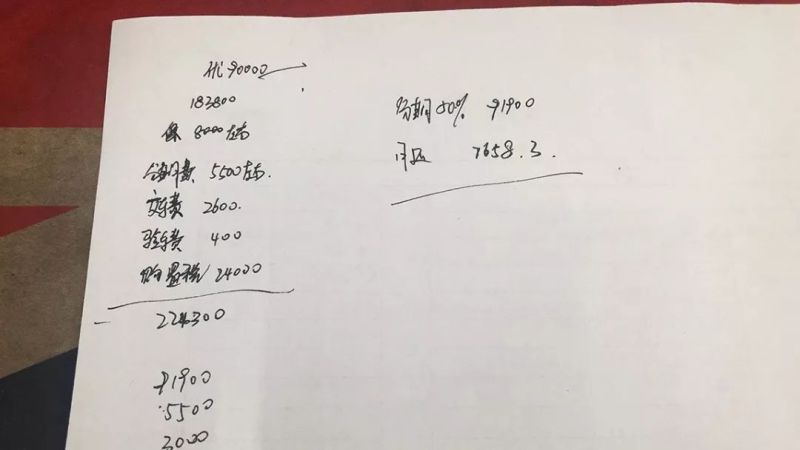 优90000
183800
保 8000左右
合同费 5500左右.
交车费 2600.
验车费 400
购置税 24000
224300
91900
5500
3000
分期50% 91900
月还 7658.3.